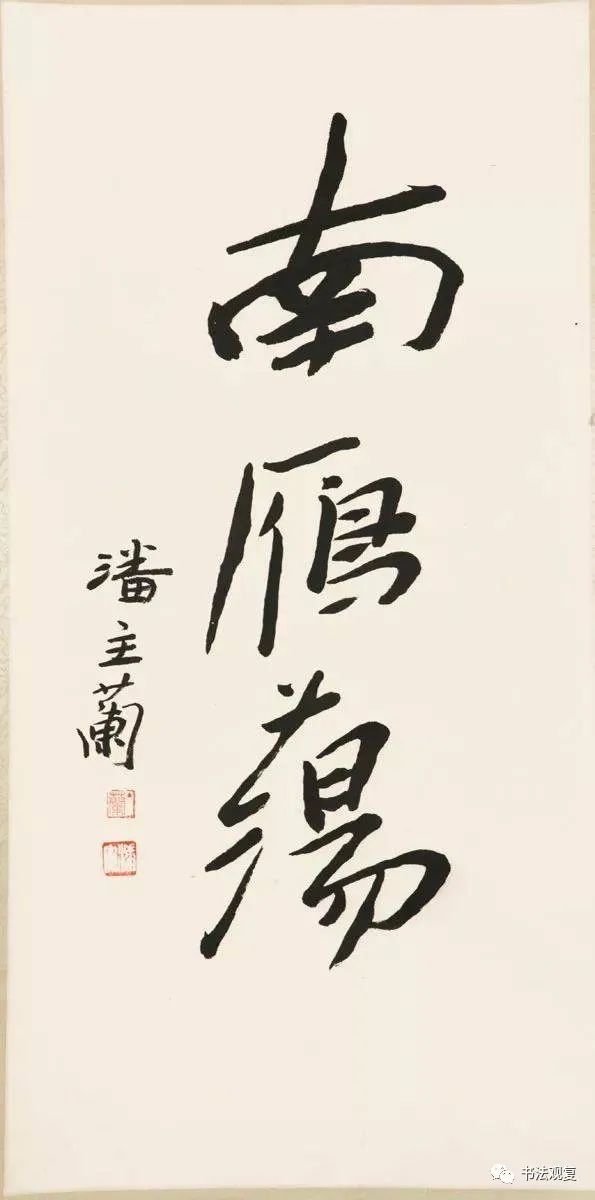 南雁蕩
潘主蘭
书法观复